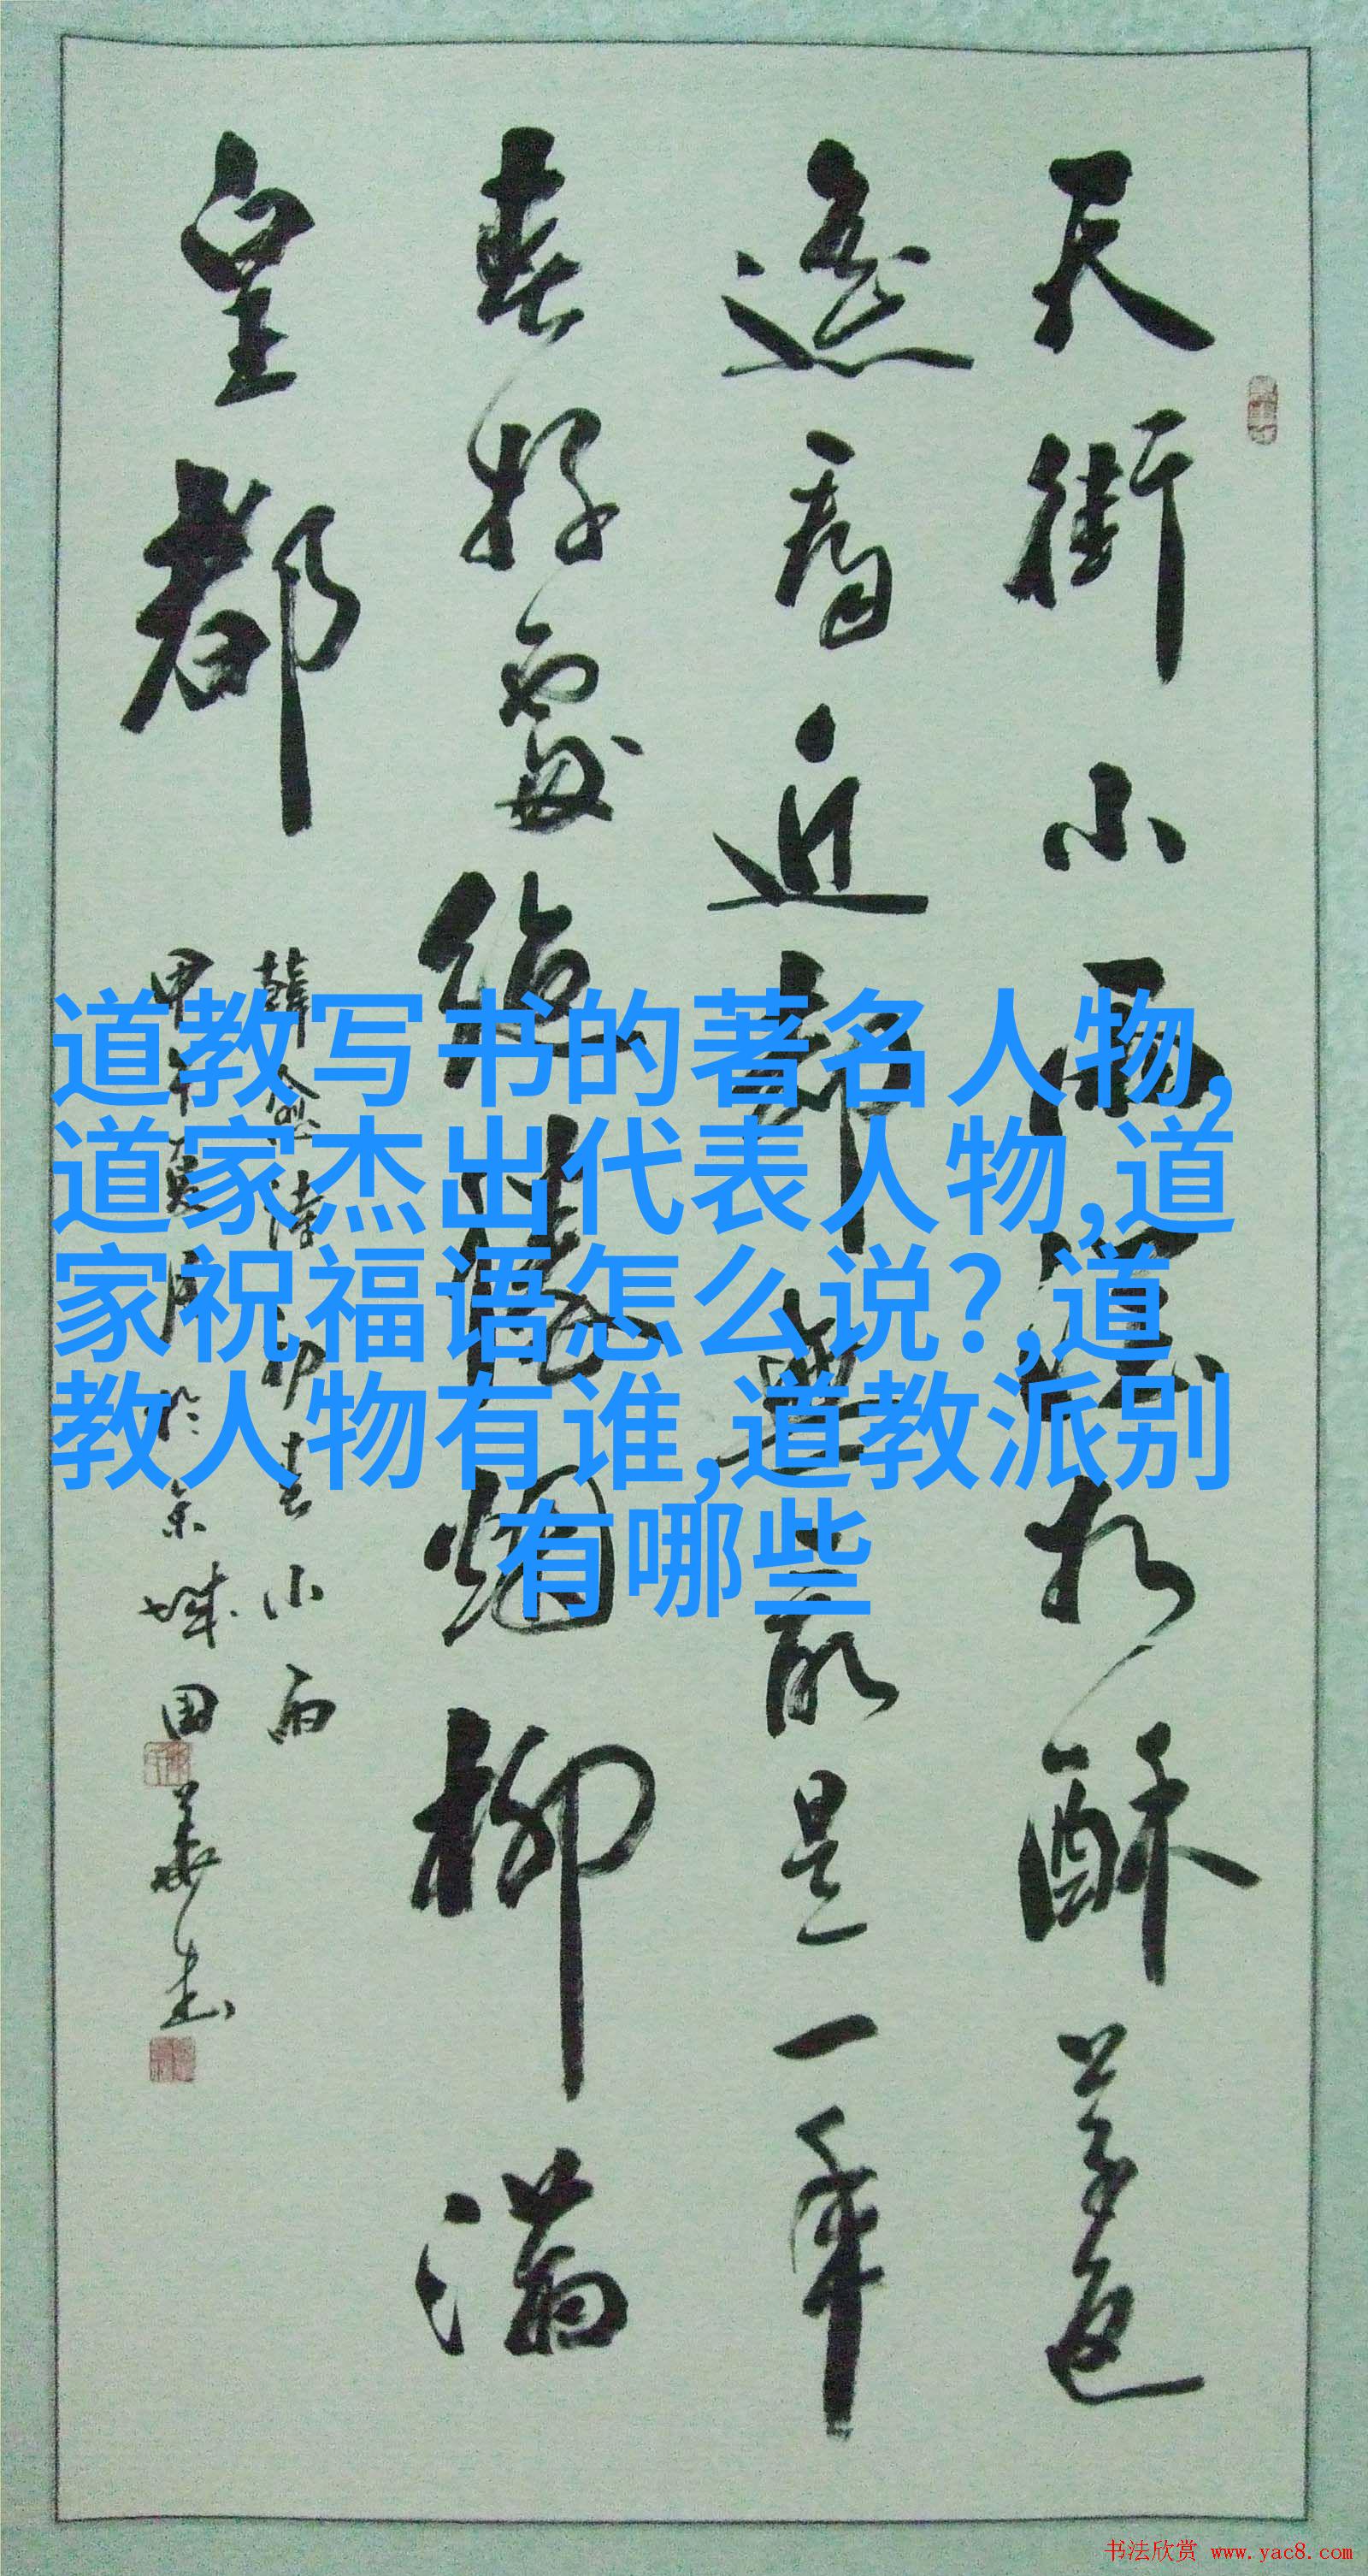 天街小雨潤如酥草色
遥看近却無最是一年
春好處絶勝烟柳滿
皇都
韓愈詩初春小雨
甲午夏月於京城
道教写书的著名人物,
道家杰出代表人物,道
家祝福语怎么说?,道
教人物有谁,道教派别
有哪些
书法欣赏 www.yac8.com